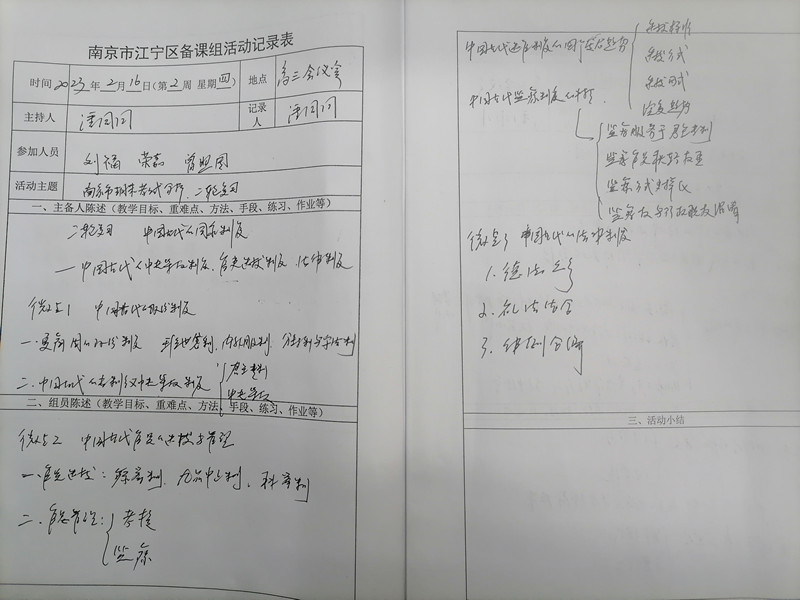 南京市江宁区备课组活动记录表
时间 2023年2月16日(第2周 星期四) 地点 高三会议室
主持人 记录人
参加人员 刘福
活动主题 南京市期末考试分析、二轮复习
一、主备人陈述（教学目标、重难点、方法、手段、练习、作业等）
二轮复习 中国古代的国家制度
一 中国古代中央集权制度、官员选拔制度、法律制度
微点1 中国古代的政治制度
一、夏商周的政治制度 内外服制、分封制与宗法制
二、中国古代的专制主义中央集权制度
君主专制
中央集权
二、组员陈述（教学目标、重难点、方法、手段、练习、作业等）
微点2 中国古代官员的选拔与管理
一、官员选拔：察举制、九品中正制、科举制
二、官员管理：
考核
监察
中国古代选官制度的变化趋势
选拔标准
选拔方式
中国古代监察制度的
监察服务于君主专制
监察方式多样化
微点3 中国古代的法律制度
1. 德法之争
2. 礼法结合
3. 律例合编
三、活动小结